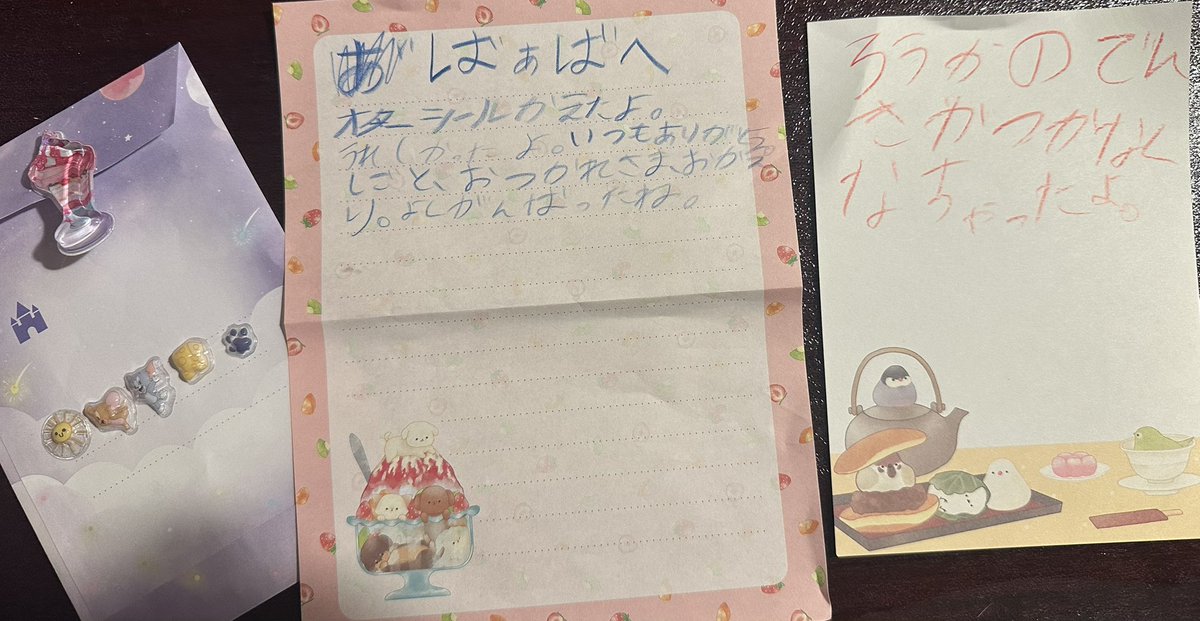 ばぁばへ
シールかえたよ。
うれしかったよ。いつもありがとう
しごと、おつかれさま。おかえ
り。よしがんばったね。
ろうかのでん
きかつがなく
なちゃったよ。